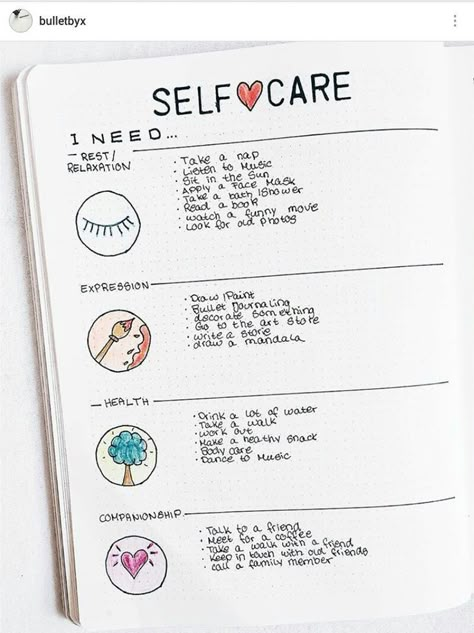 bulletbyx
SELF CARE
I NEED...
REST/
RELAXATION
· Take a nap
· Listen to Music
· Sit in the Sun
· Apply a Face Mask
· Take a bath/Shower
· Read a book
· watch a funny move
· Look for old photos
EXPRESSION
· Draw/Paint
· Bullet Journaling
· decorate something
· Go to the art store
· write a store
· draw a mandala
HEALTH
· Drink a lot of water
· Take a walk
· work out
· Make a healthy snack
· Body care
· Dance to Music
COMPANIONSHIP
· Talk to a friend
· Meet for a coffee
· Take a walk with a friend
· Keep in touch with old friends
· call a family member